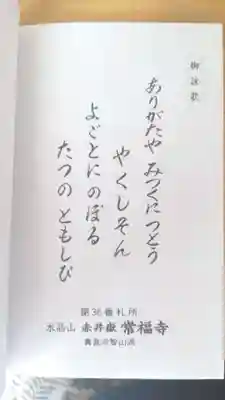 御詠歌
ありがたや みつくにつどう
やくしそん
よごとにのぼる
たつの ともしび
第36番札所
水晶山 赤井嶽 常福寺
真言宗智山派